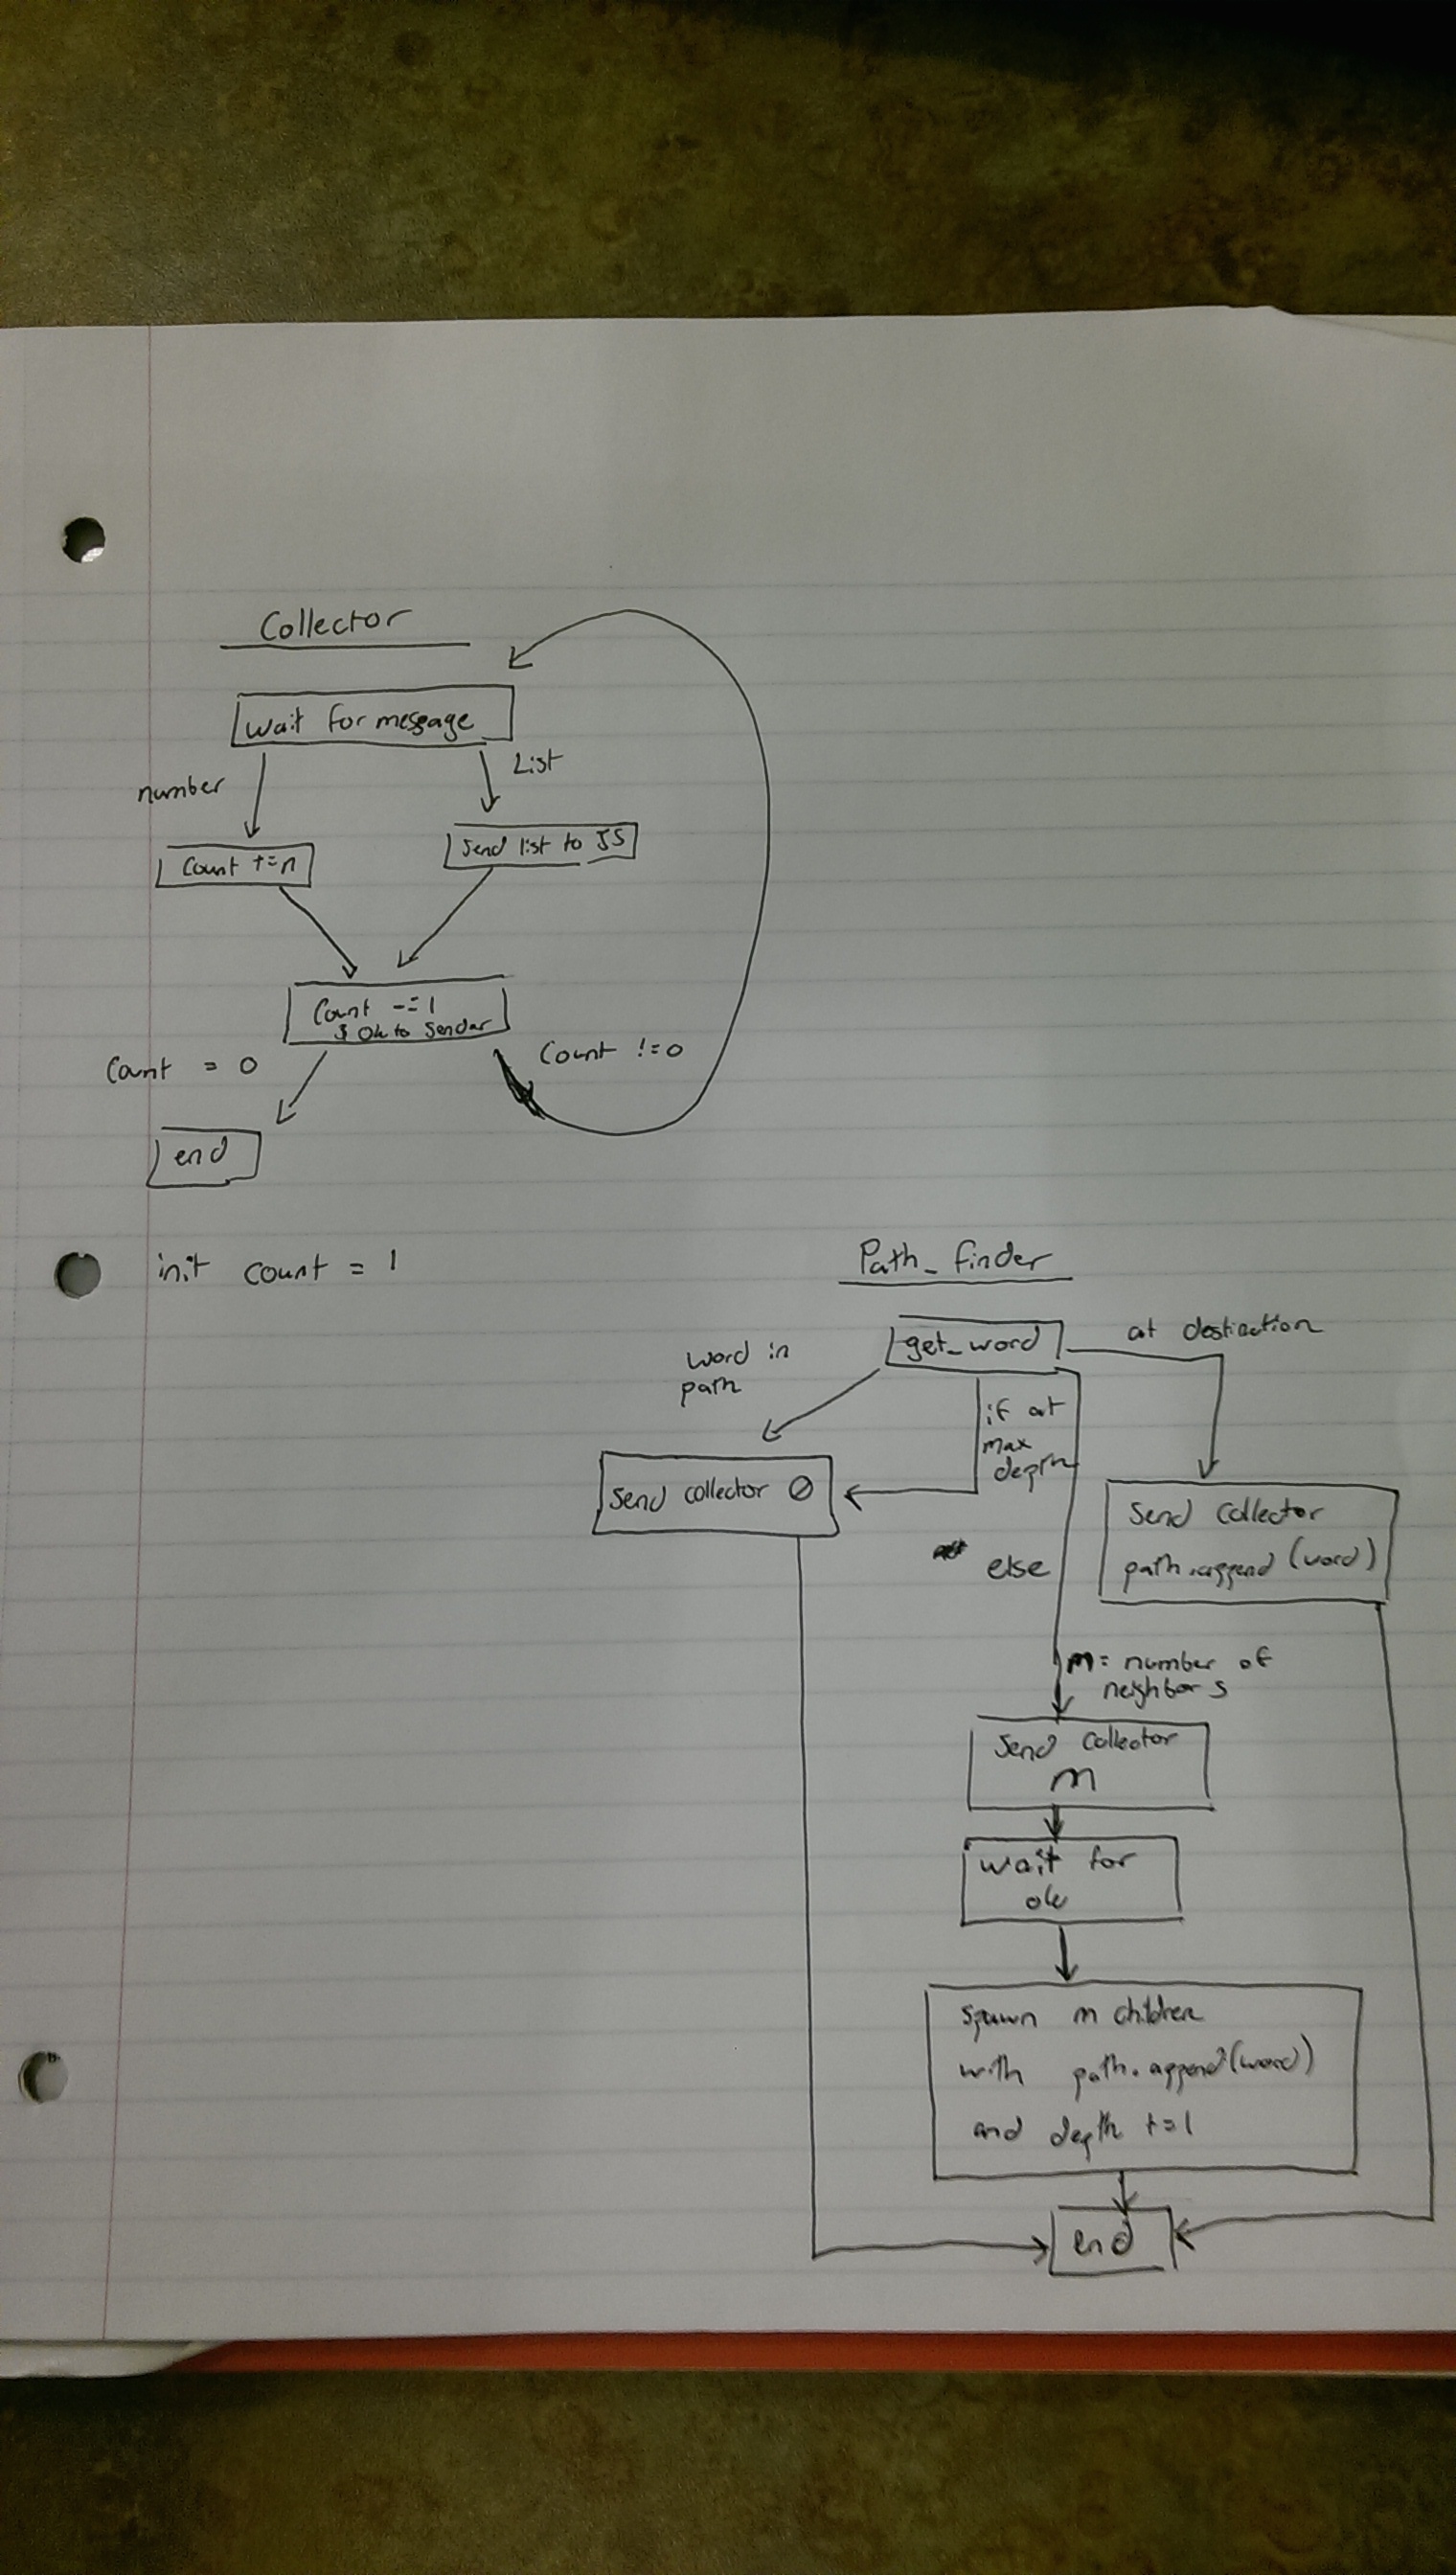 Collector
wait for message
number
List
Count += n
Send list to JS
Count -= 1
& Ok to Sender
Count = 0
Count != 0
end
init count = 1
Path_finder
get_word
at destination
word in
path
if at
max
depth
Send collector 0
Send Collector
path.append(word)
else
m = number of
neighbors
Send Collector
m
wait for
ok
spawn m children
with path.append(word)
and depth += 1
end